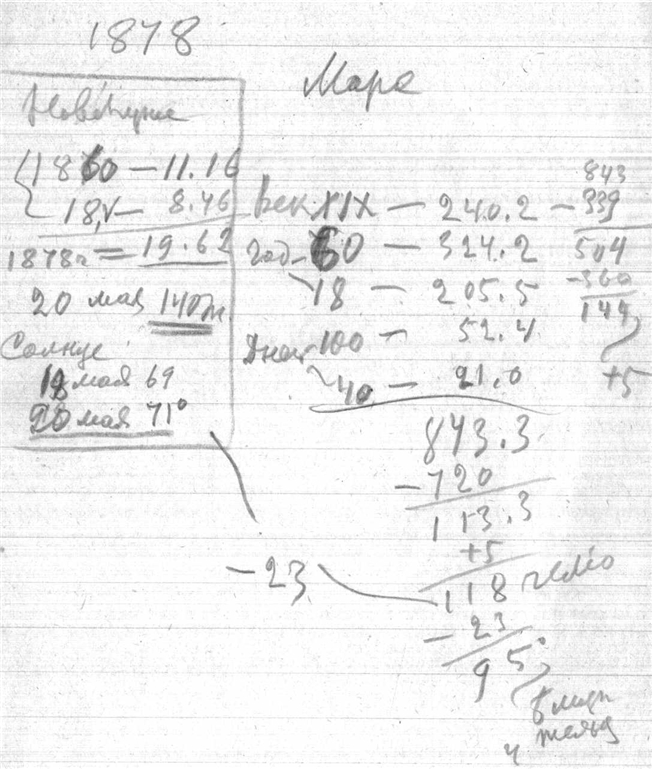 1878
Марс
Новолуние
1860 — 11.16
18,V — 8.46
1878г = 19.62
20 мая
Солнце
18 мая 69
20 мая 71°
Век XIX — 240.2
Год — 60 — 324.2
18 — 205.5
Дней 100 — 52.4
40 — 21.0
843.3
— 720
113.3
+5
118 гелио
— 23
95°
— 23
843
— 339
504
— 360
144
+5